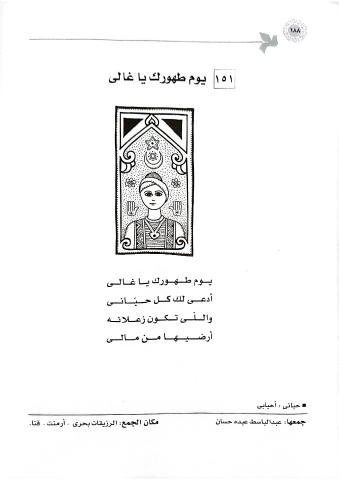 ١٨٨
١٥١ يوم طهورك يا غالى
يوم طهورك يا غالى
أدعى لك كل حبّانى
واللّى تكون زعلانه
أرضيها من مالى
■ حبانى : أحبابى
جمعها: عبدالباسط عبده حسان
مكان الجمع: الرزيقات بحرى - أرمنت - قنا.